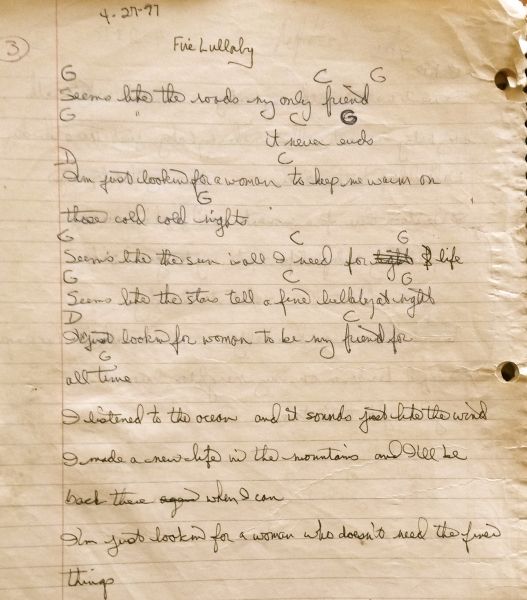 4-27-97
3
Fire Lullaby
G C G
Seems like the roads my only friend
G " C G
it never ends
D C
I'm just lookin for a woman to keep me warm on
G
those cold cold nights
G C G
Seems like the sun is all I need for life
G C G
Seems like the stars tell a fine lullaby at night
D C
I just lookin for woman to be my friend for
G
all time
I listened to the ocean and it sounds just like the wind
I made a new life in the mountains and I'll be
back there again when I can
I'm just lookin for a woman who doesn't need the finer
things